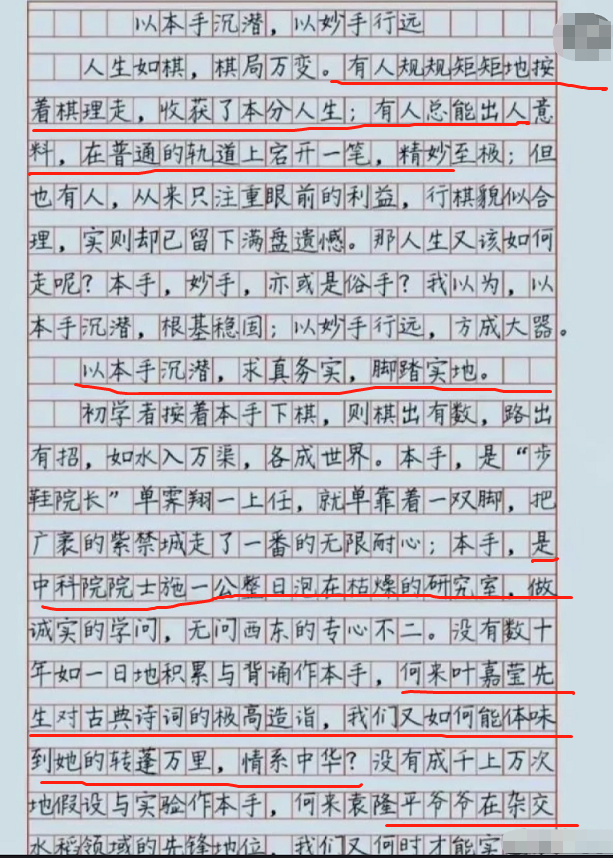 以本手沉潜，以妙手行远
人生如棋，棋局万变。有人规规矩矩地按
着棋理走，收获了本分人生；有人总能出人意
料，在普通的轨道上宕开一笔，精妙至极；但
也有人，从来只注重眼前的利益，行棋貌似合
理，实则却已留下满盘遗憾。那人生又该如何
走呢？本手，妙手，亦或是俗手？我以为，以
本手沉潜，根基稳固；以妙手行远，方成大器。
以本手沉潜，求真务实，脚踏实地。
初学者按着本手下棋，则棋出有数，路出
有招，如水入万渠，各成世界。本手，是“步
鞋院长”单霁翔一上任，就单靠着一双脚，把
广袤的紫禁城走了一番的无限耐心；本手，是
中科院院士施一公整日泡在枯燥的研究室，做
诚实的学问，无问西东的专心不二。没有数十
年如一日地积累与背诵作本手，何来叶嘉莹先
生对古典诗词的极高造诣，我们又如何能体味
到她的转蓬万里，情系中华？没有成千上万次
地假设与实验作本手，何来袁隆平爷爷在杂交
水稻领域的先锋地位，我们又何时才能实